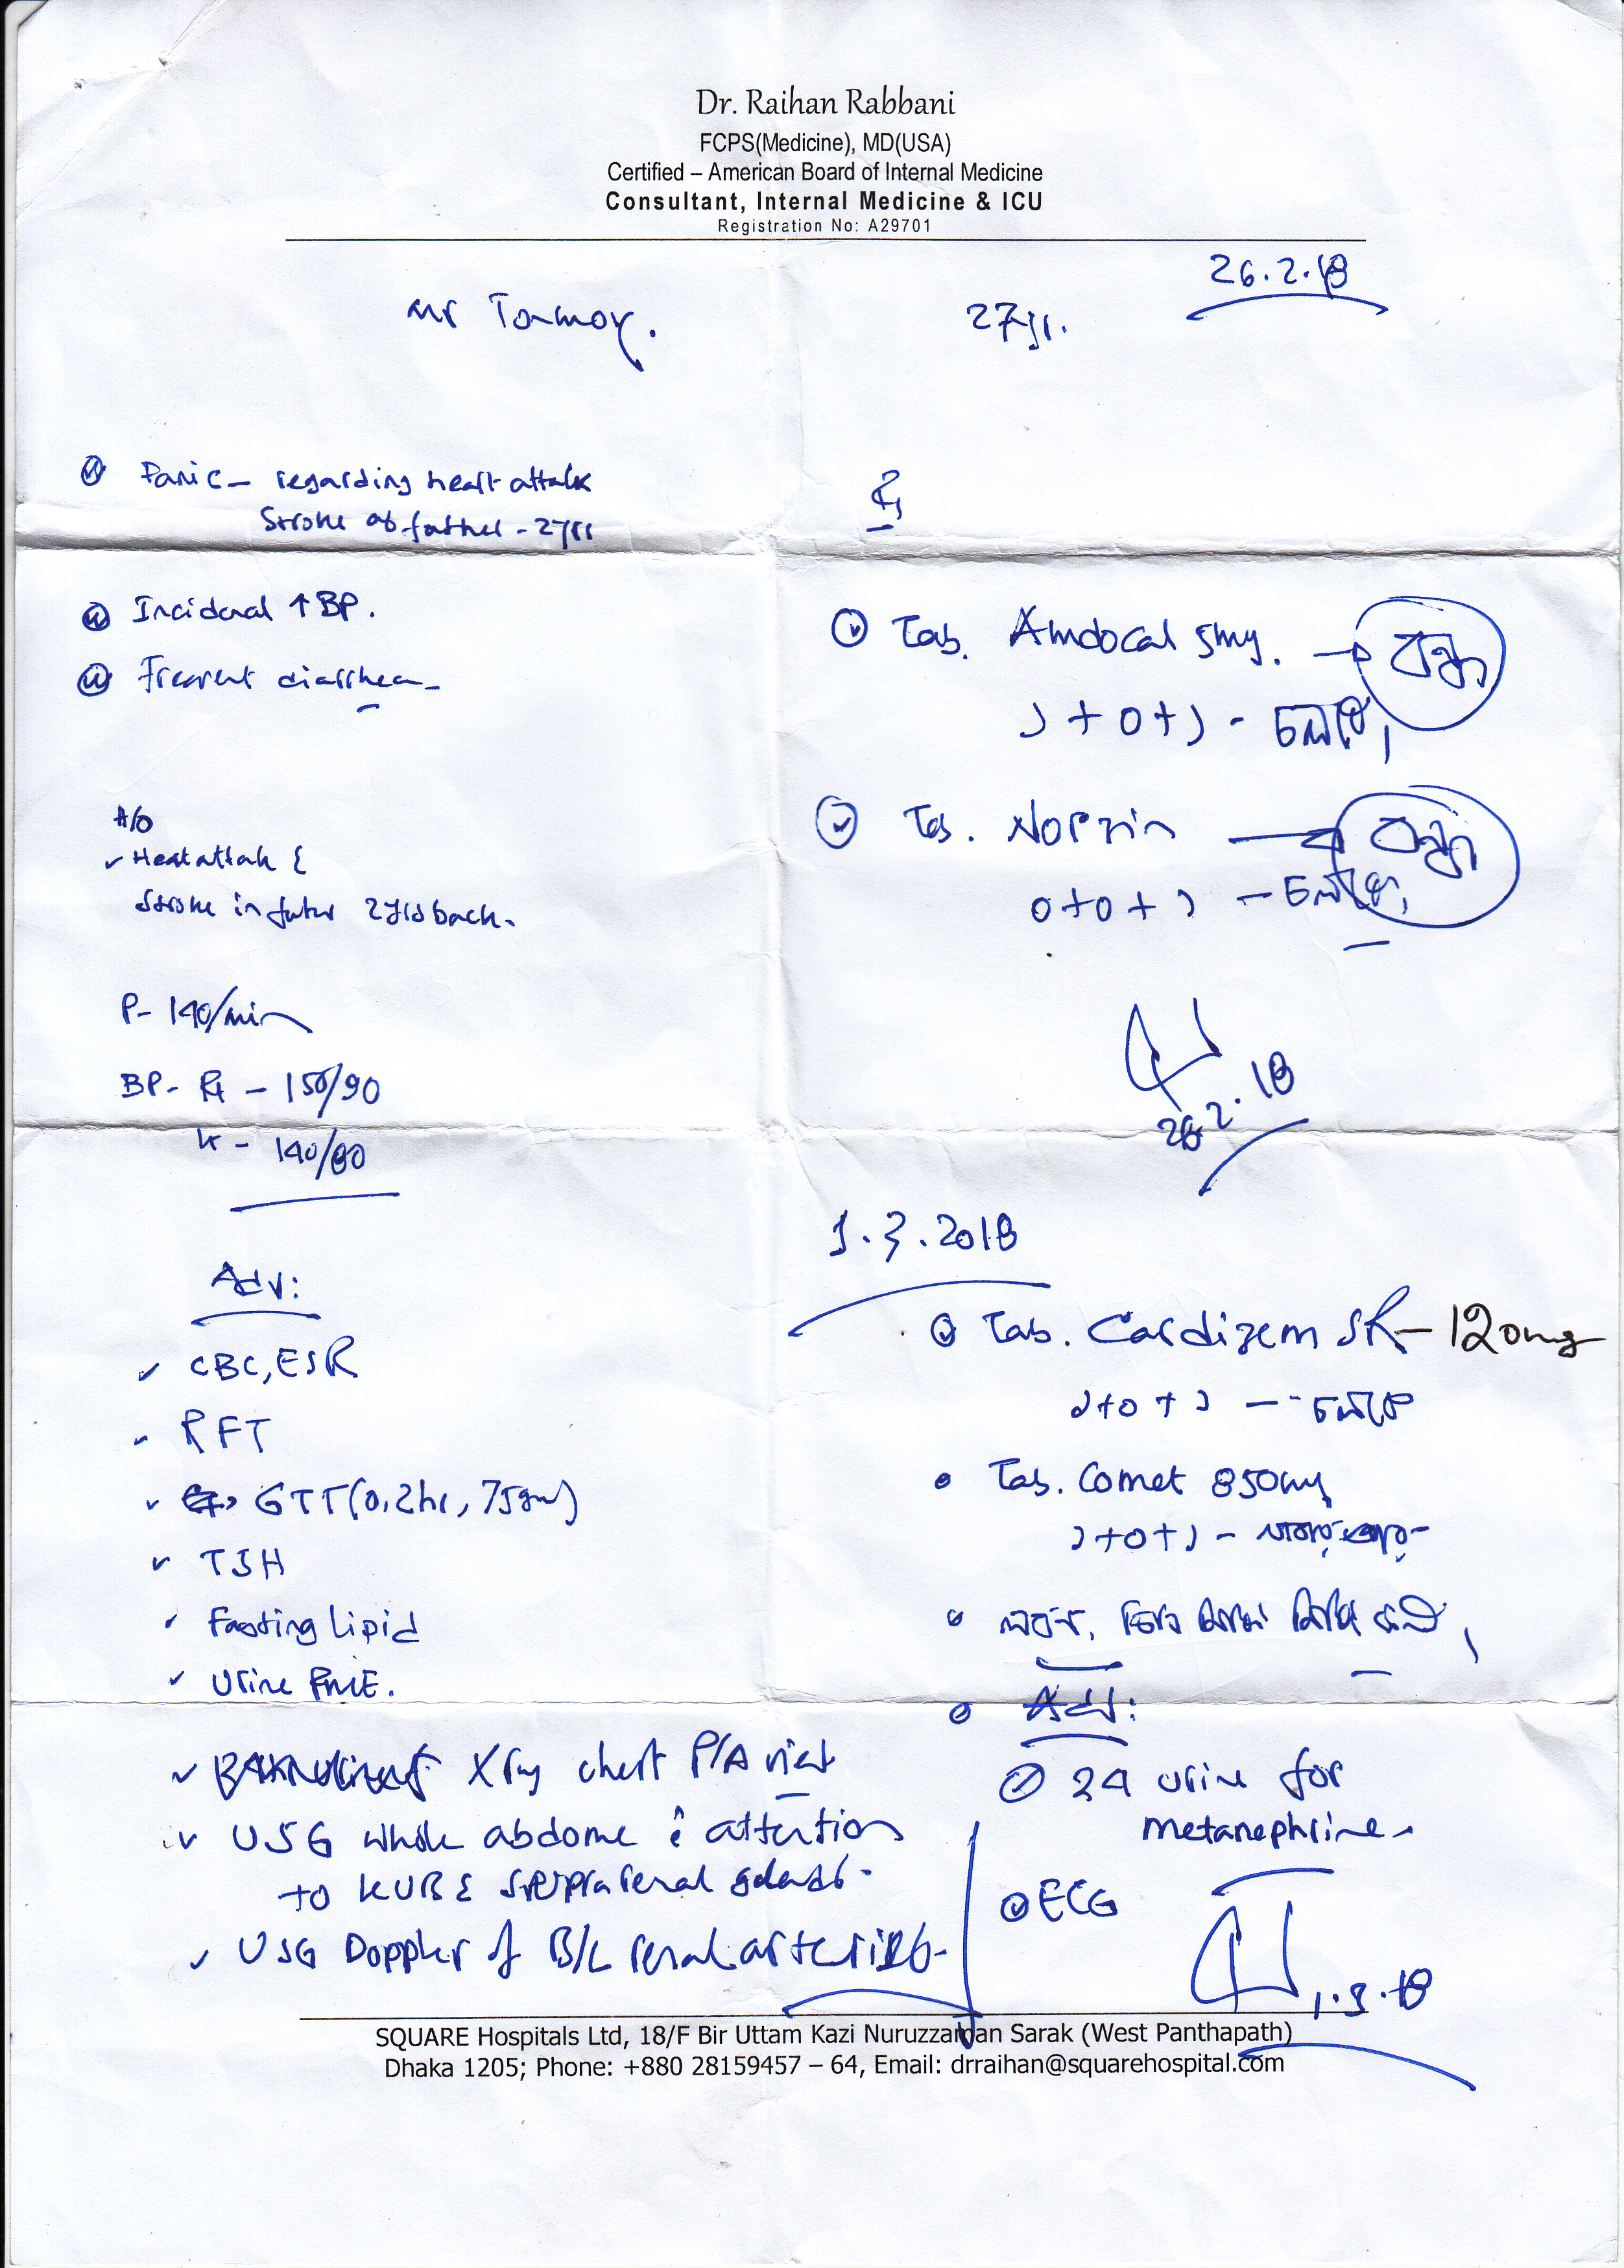 Dr. Raihan Rabbani
FCPS(Medicine), MD(USA)
Certified – American Board of Internal Medicine
Consultant, Internal Medicine & ICU
Registration No: A29701
26.2.18
Mr Tonmoy.
27yr.
Panic – regarding heart attack
Stroke of father - 2yrs
Incidental ↑ BP.
Frequent diarrhea
H/O
✓ Heart attack &
Stroke in father 2 yrs back.
P- 140/min
BP- Rt – 150/90
Lt – 140/80
Adv:
✓ CBC, ESR
✓ RFT
✓ GTT (0, 2hr, 75gm)
✓ TSH
✓ Fasting Lipid
✓ Urine RME.
✓ X ray chest P/A view
✓ USG whole abdome c̄ attention
to KUB & suprarenal glands.
✓ USG Doppler of B/L renal arteries
Rx
Tab. Amdocal 5mg. → বন্ধ
১ + ০ + ১ - চলবে,
Tab. Norzin → বন্ধ
০ + ০ + ১ – চলবে,
26.2.18
1.3.2018
Tab. Cardizem SR – 120mg
১ + ০ + ১ – চলবে
Tab. Comet 850mg
১ + ০ + ১ –
Adv:
24 urine for
metanephrine
ECG
1.3.18
SQUARE Hospitals Ltd, 18/F Bir Uttam Kazi Nuruzzaman Sarak (West Panthapath)
Dhaka 1205; Phone: +880 28159457 – 64, Email: drraihan@squarehospital.com